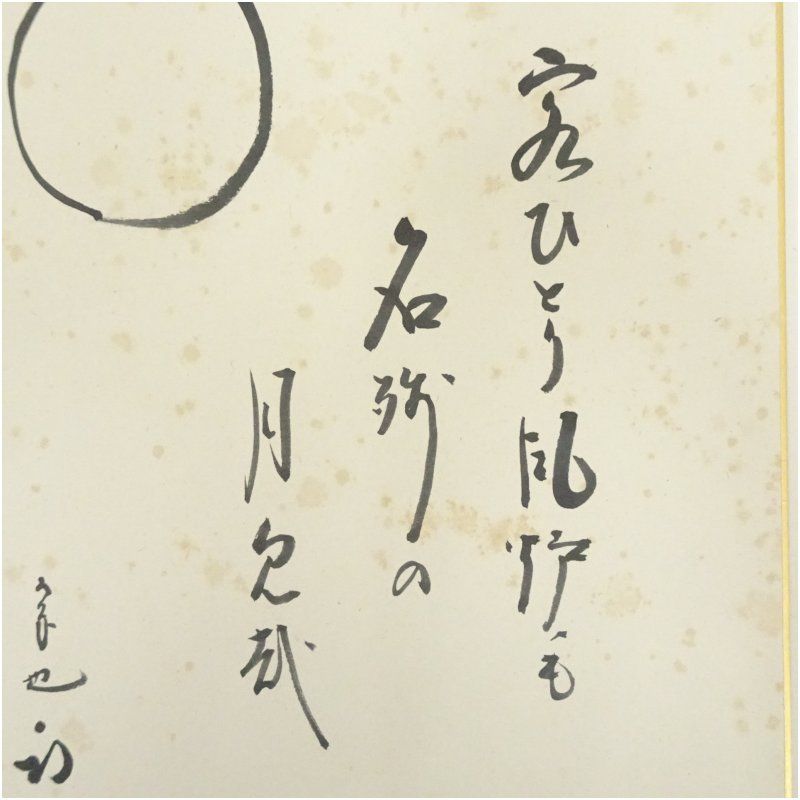 客ひとり風炉も
名残の
月見哉